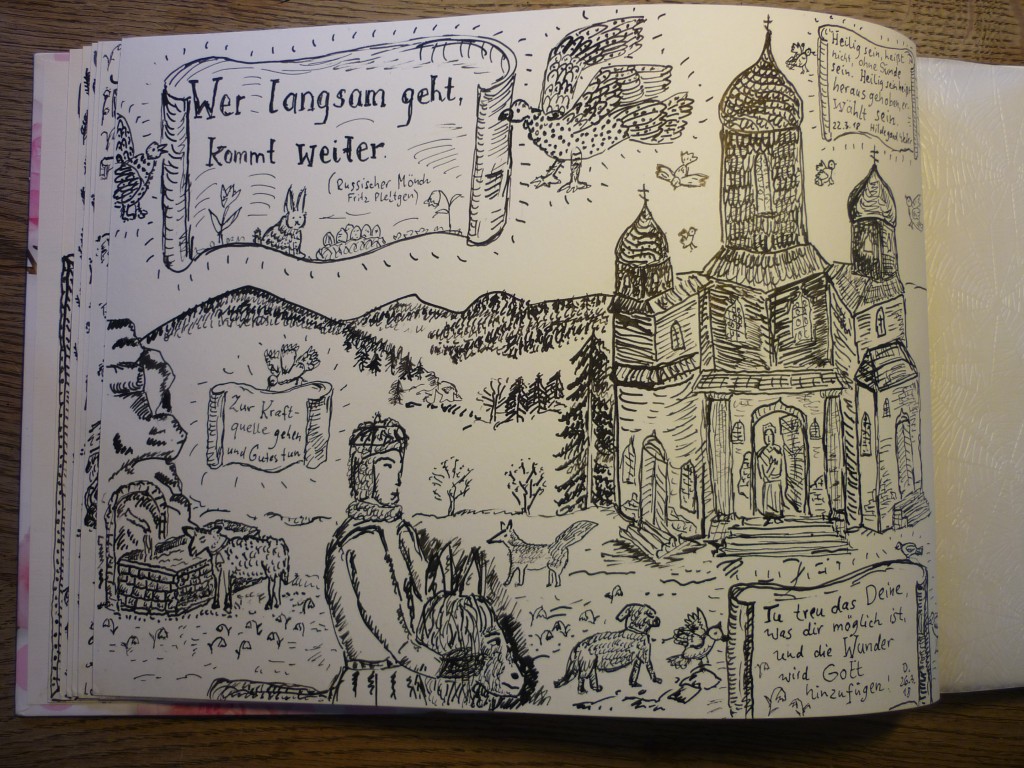 Wer langsam geht,
kommt weiter.
(Russischer Mönch
Fritz Pleitgen)
Heilig sein heißt
nicht, ohne Sünde
sein. Heilig sein ist
heraus gehoben, er-
wählt sein.
22.3.18 Hildegard
Zur Kraft-
quelle gehen
und Gutes tun
Tu treu das Deine,
was dir möglich ist,
und die Wunder
wird Gott
hinzufügen!